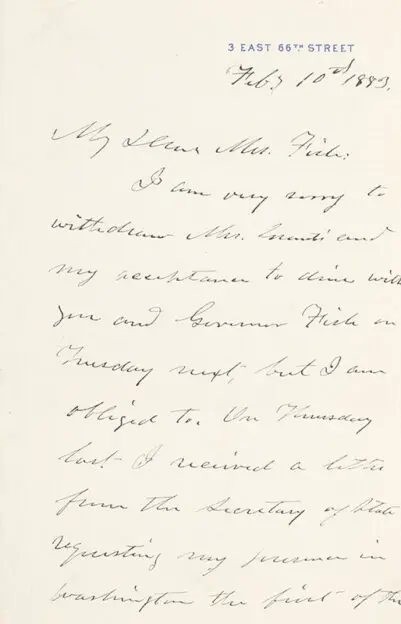 3 EAST 66TH STREET
Feby 10th 1883.
My Dear Mrs. Fish:
I am very sorry to
withdraw Mrs. Grant's and
my acceptance to dine with
you and Governor Fish on
Tuesday next, but I am
obliged to. On Thursday
last I received a letter
from the Secretary of State
requesting my presence in
Washington the first of the